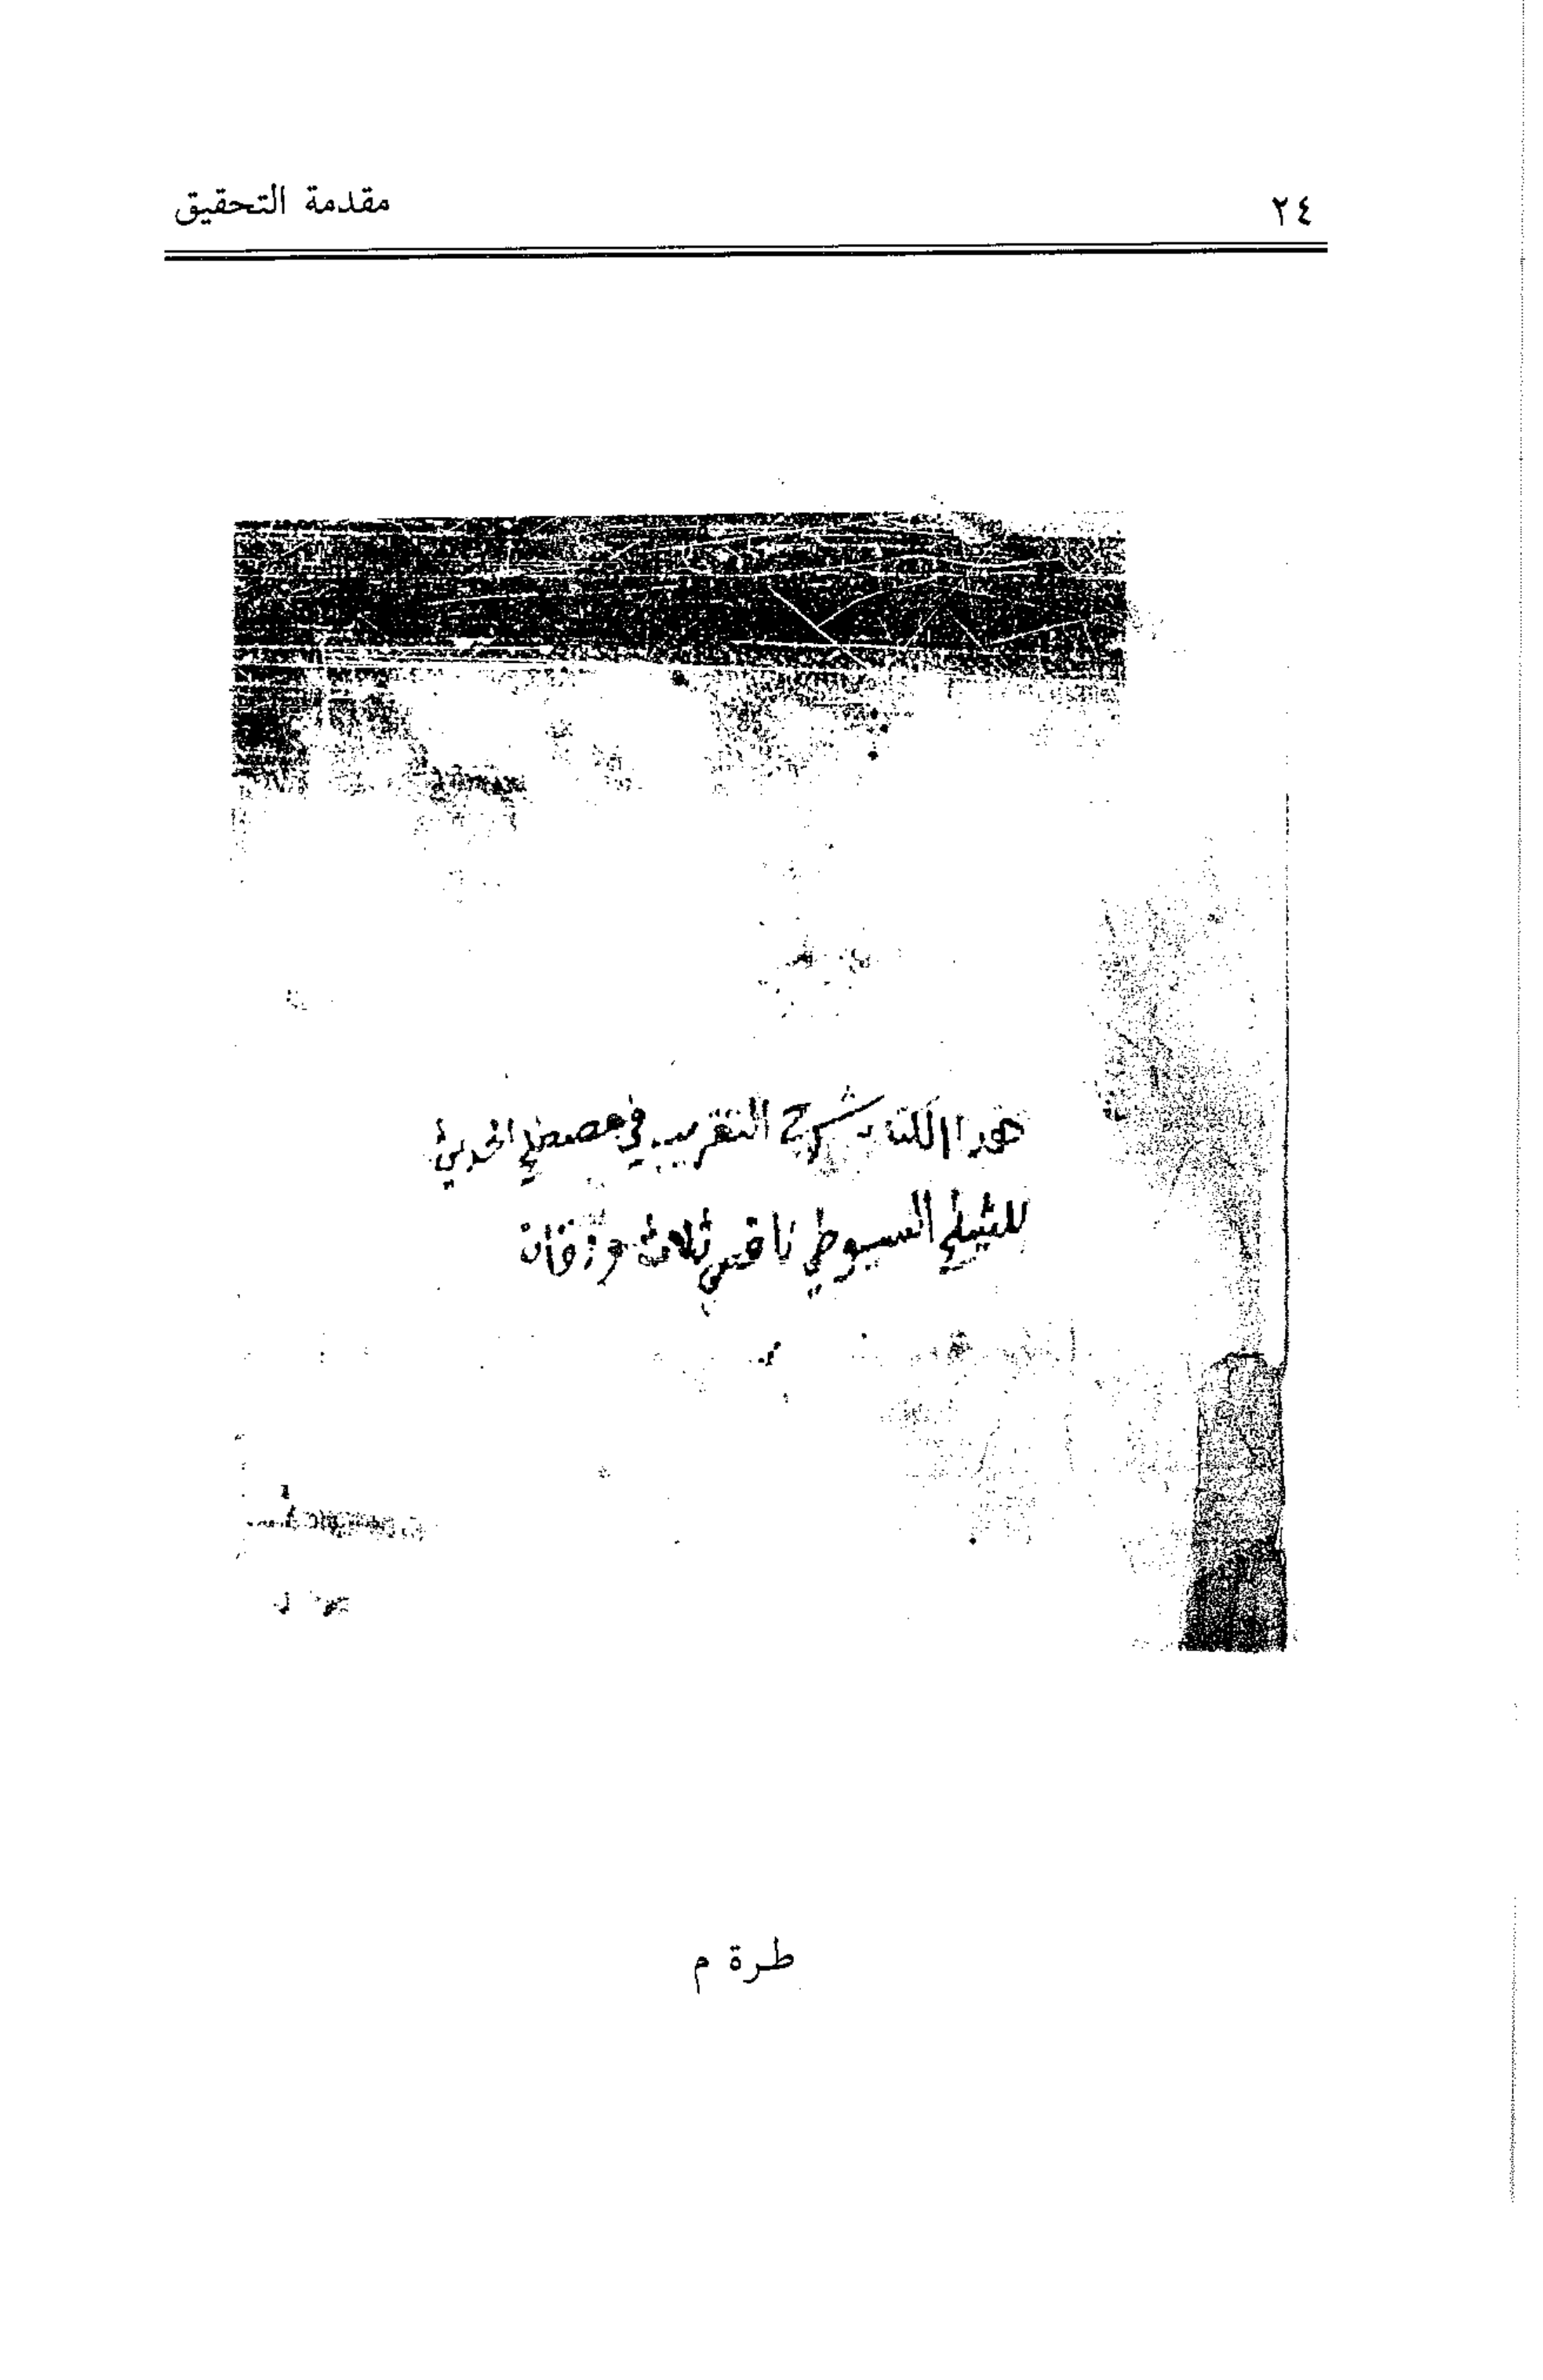 ٢٤ مقدمة التحقيق
هذا الكتاب شرح التقريب في مصطلح الحديث
للشيخ السيوطي ناقص ثلاث ورقات
طرة م